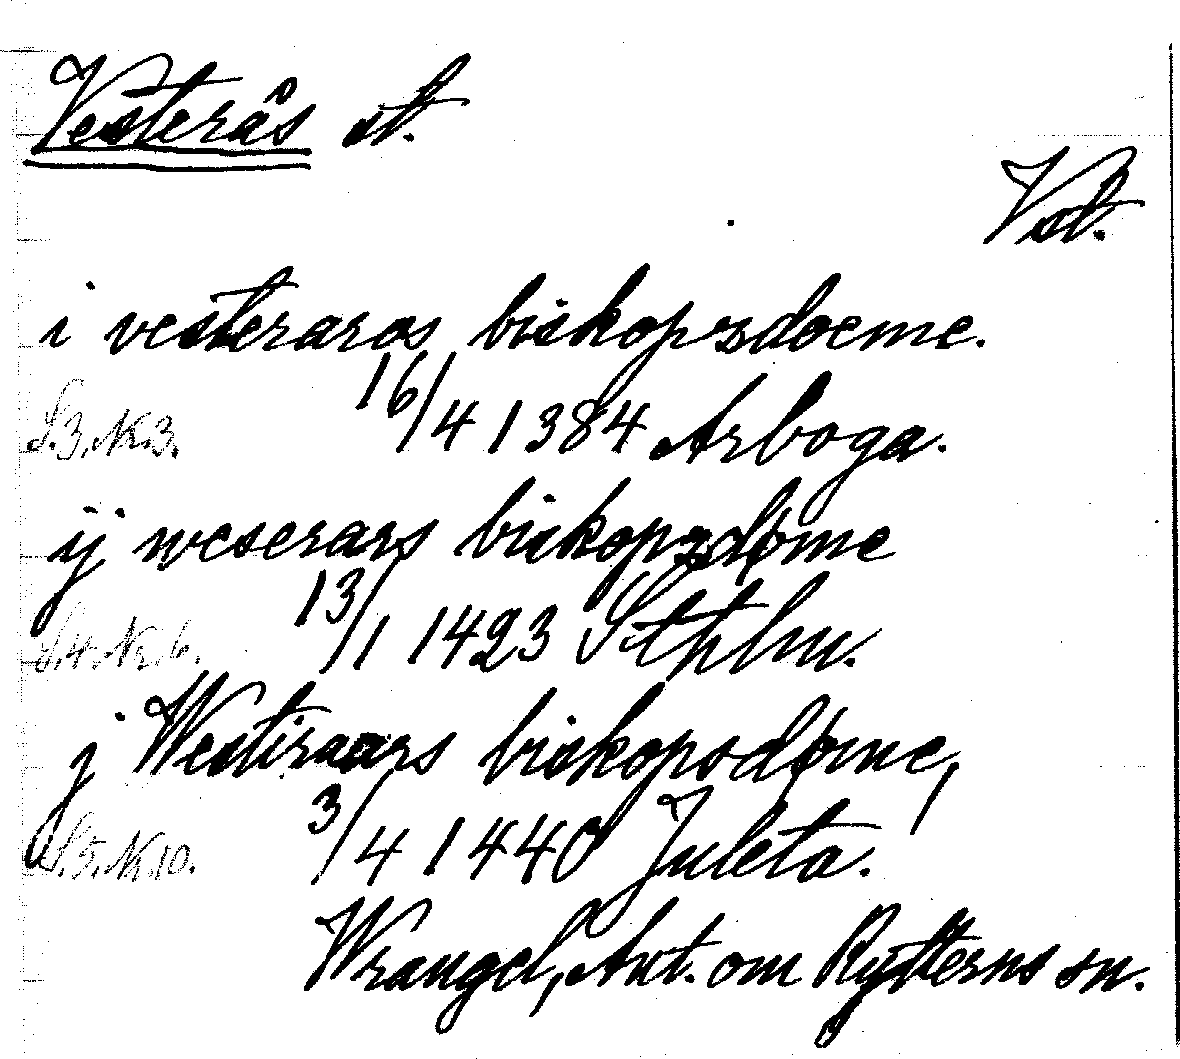 Vesterås st.
Vst.
i vesteraros biskopszdoeme.
S.3. Nr.3. 16/4 1384 Arboga.
ij weserars biskopzdøme
S.4. Nr.6. 13/1 1423 Stphm.
j Westiraars biskopsdøme,
S.5. Nr.10. 3/4 1440 Juleta.
Wrangel, Ant. om Rytterns sn.